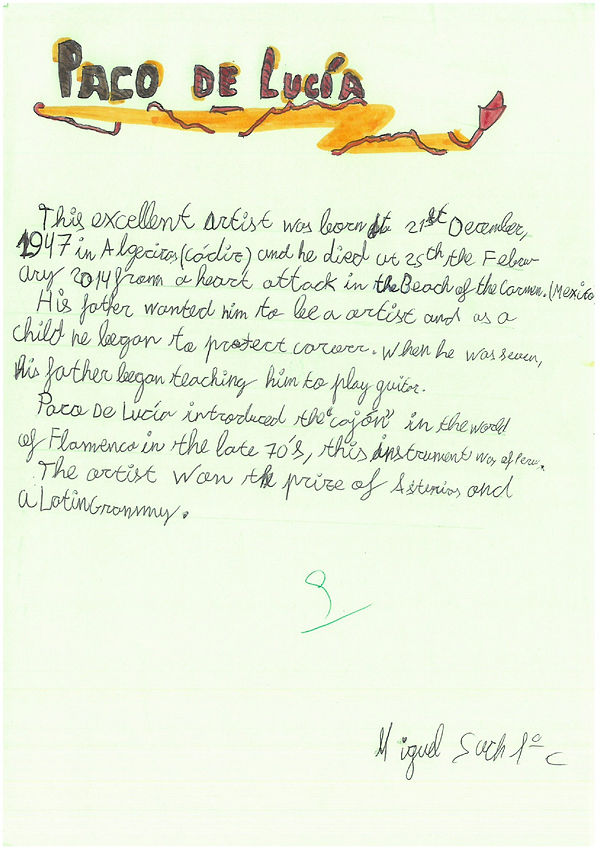 PACO DE LUCÍA
This excellent artist was born at 21st December,
1947 in Algeciras (Cádiz) and he died at 25th the Febru
ary 2014 from a heart attack in the Beach of the Carmen. (Mexico
His father wanted him to be a artist and as a
child he began to protect career. When he was seven,
his father began teaching him to play guitar.
Paco De Lucía introduced the "cajón" in the world
of Flamenco in the late 70's, this instrument was of Peru.
The artist won the prize of Asturias and
a Latin Grammy.
9
Miguel 1º C